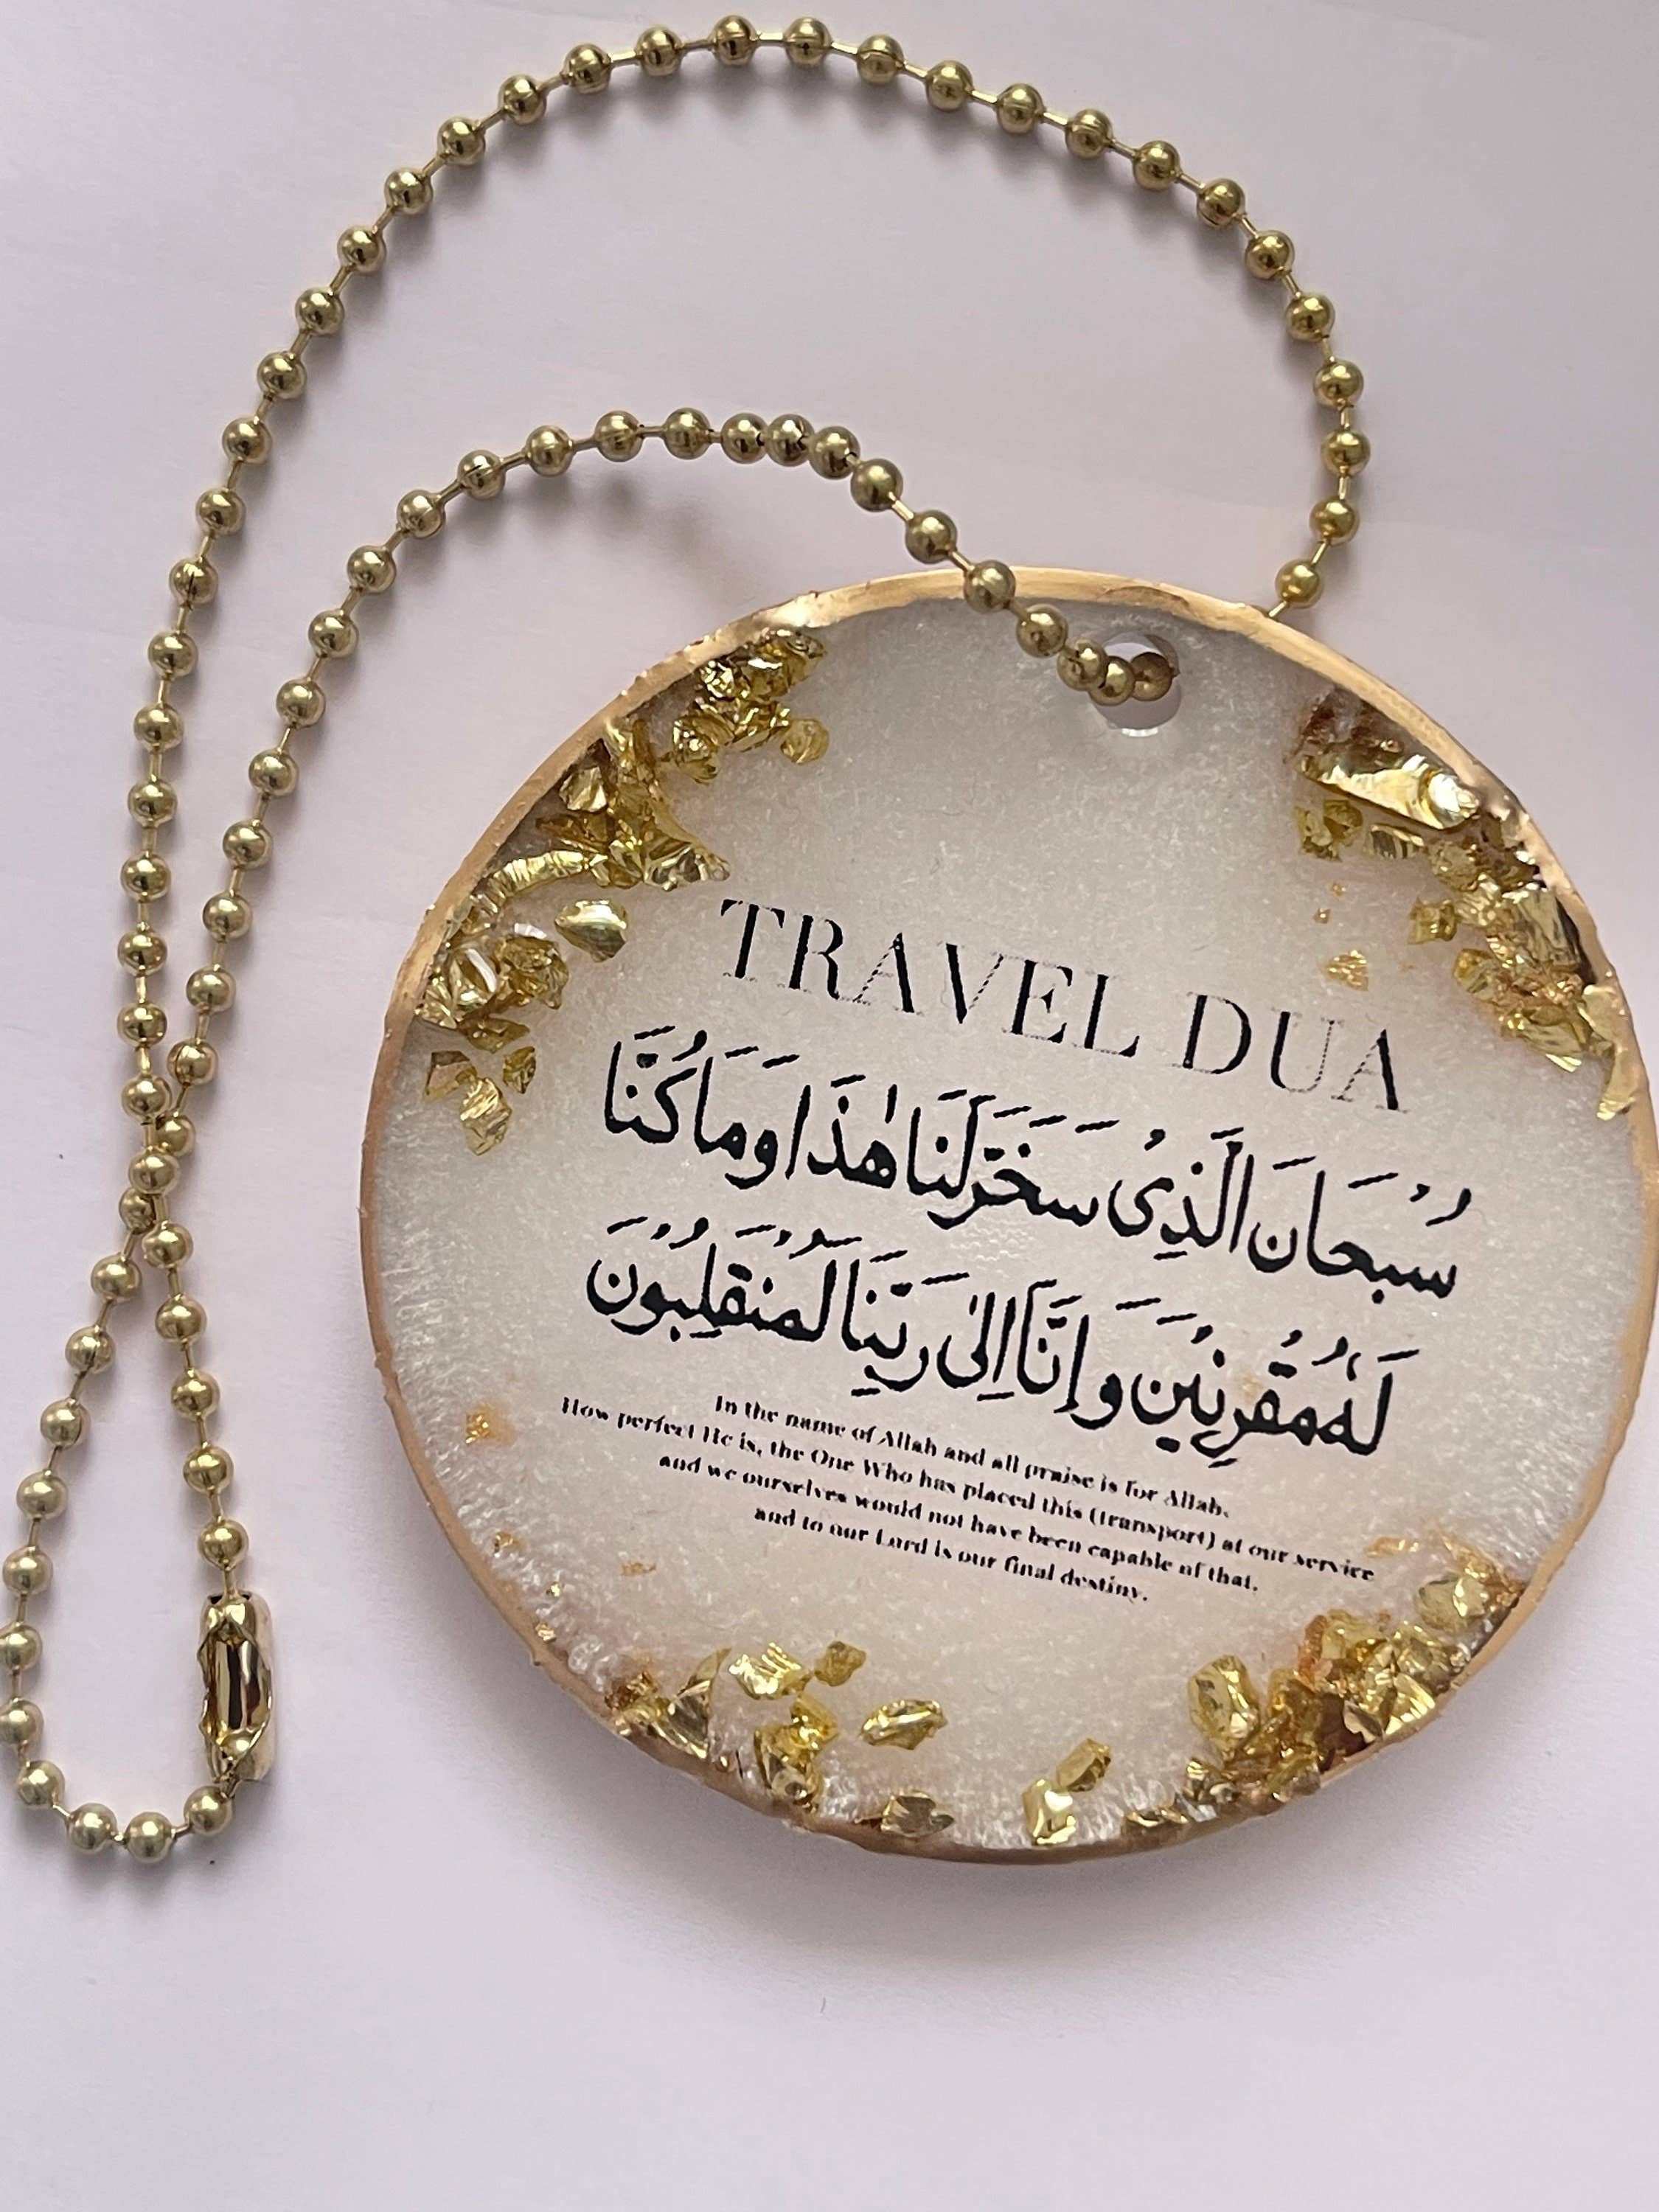 TRAVEL DUA
سُبْحَانَ الَّذِى سَخَّرَ لَنَا هٰذَا وَمَا كُنَّا
لَهُ مُقْرِنِيْنَ وَإِنَّا إِلٰى رَبِّنَا لَمُنْقَلِبُوْنَ
In the name of Allah and all praise is for Allah.
How perfect He is, the One Who has placed this (transport) at our service
and we ourselves would not have been capable of that,
and to our Lord is our final destiny.